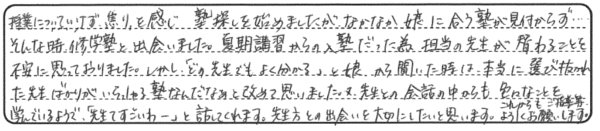 授業についていけず焦りを感じ 塾探しを始めましたが、なかなか娘に合う塾が見付からず…
そんな時、修学塾と出会いました。夏期講習からの入塾だった為、担当の先生が替わることを
不安に思っておりました。しかし「どの先生でもよく分かる。」と娘から聞いた時は、本当に選び抜かれ
た先生ばかりがいらっしゃる塾なんだなぁと改めて思いました。又、先生との会話の中からも色々なことを
学んでいるようで、「先生てすごいわー」と話してくれます。先生方との出会いを大切にしたいと思います。
これからもご指導
ようにお願いします。